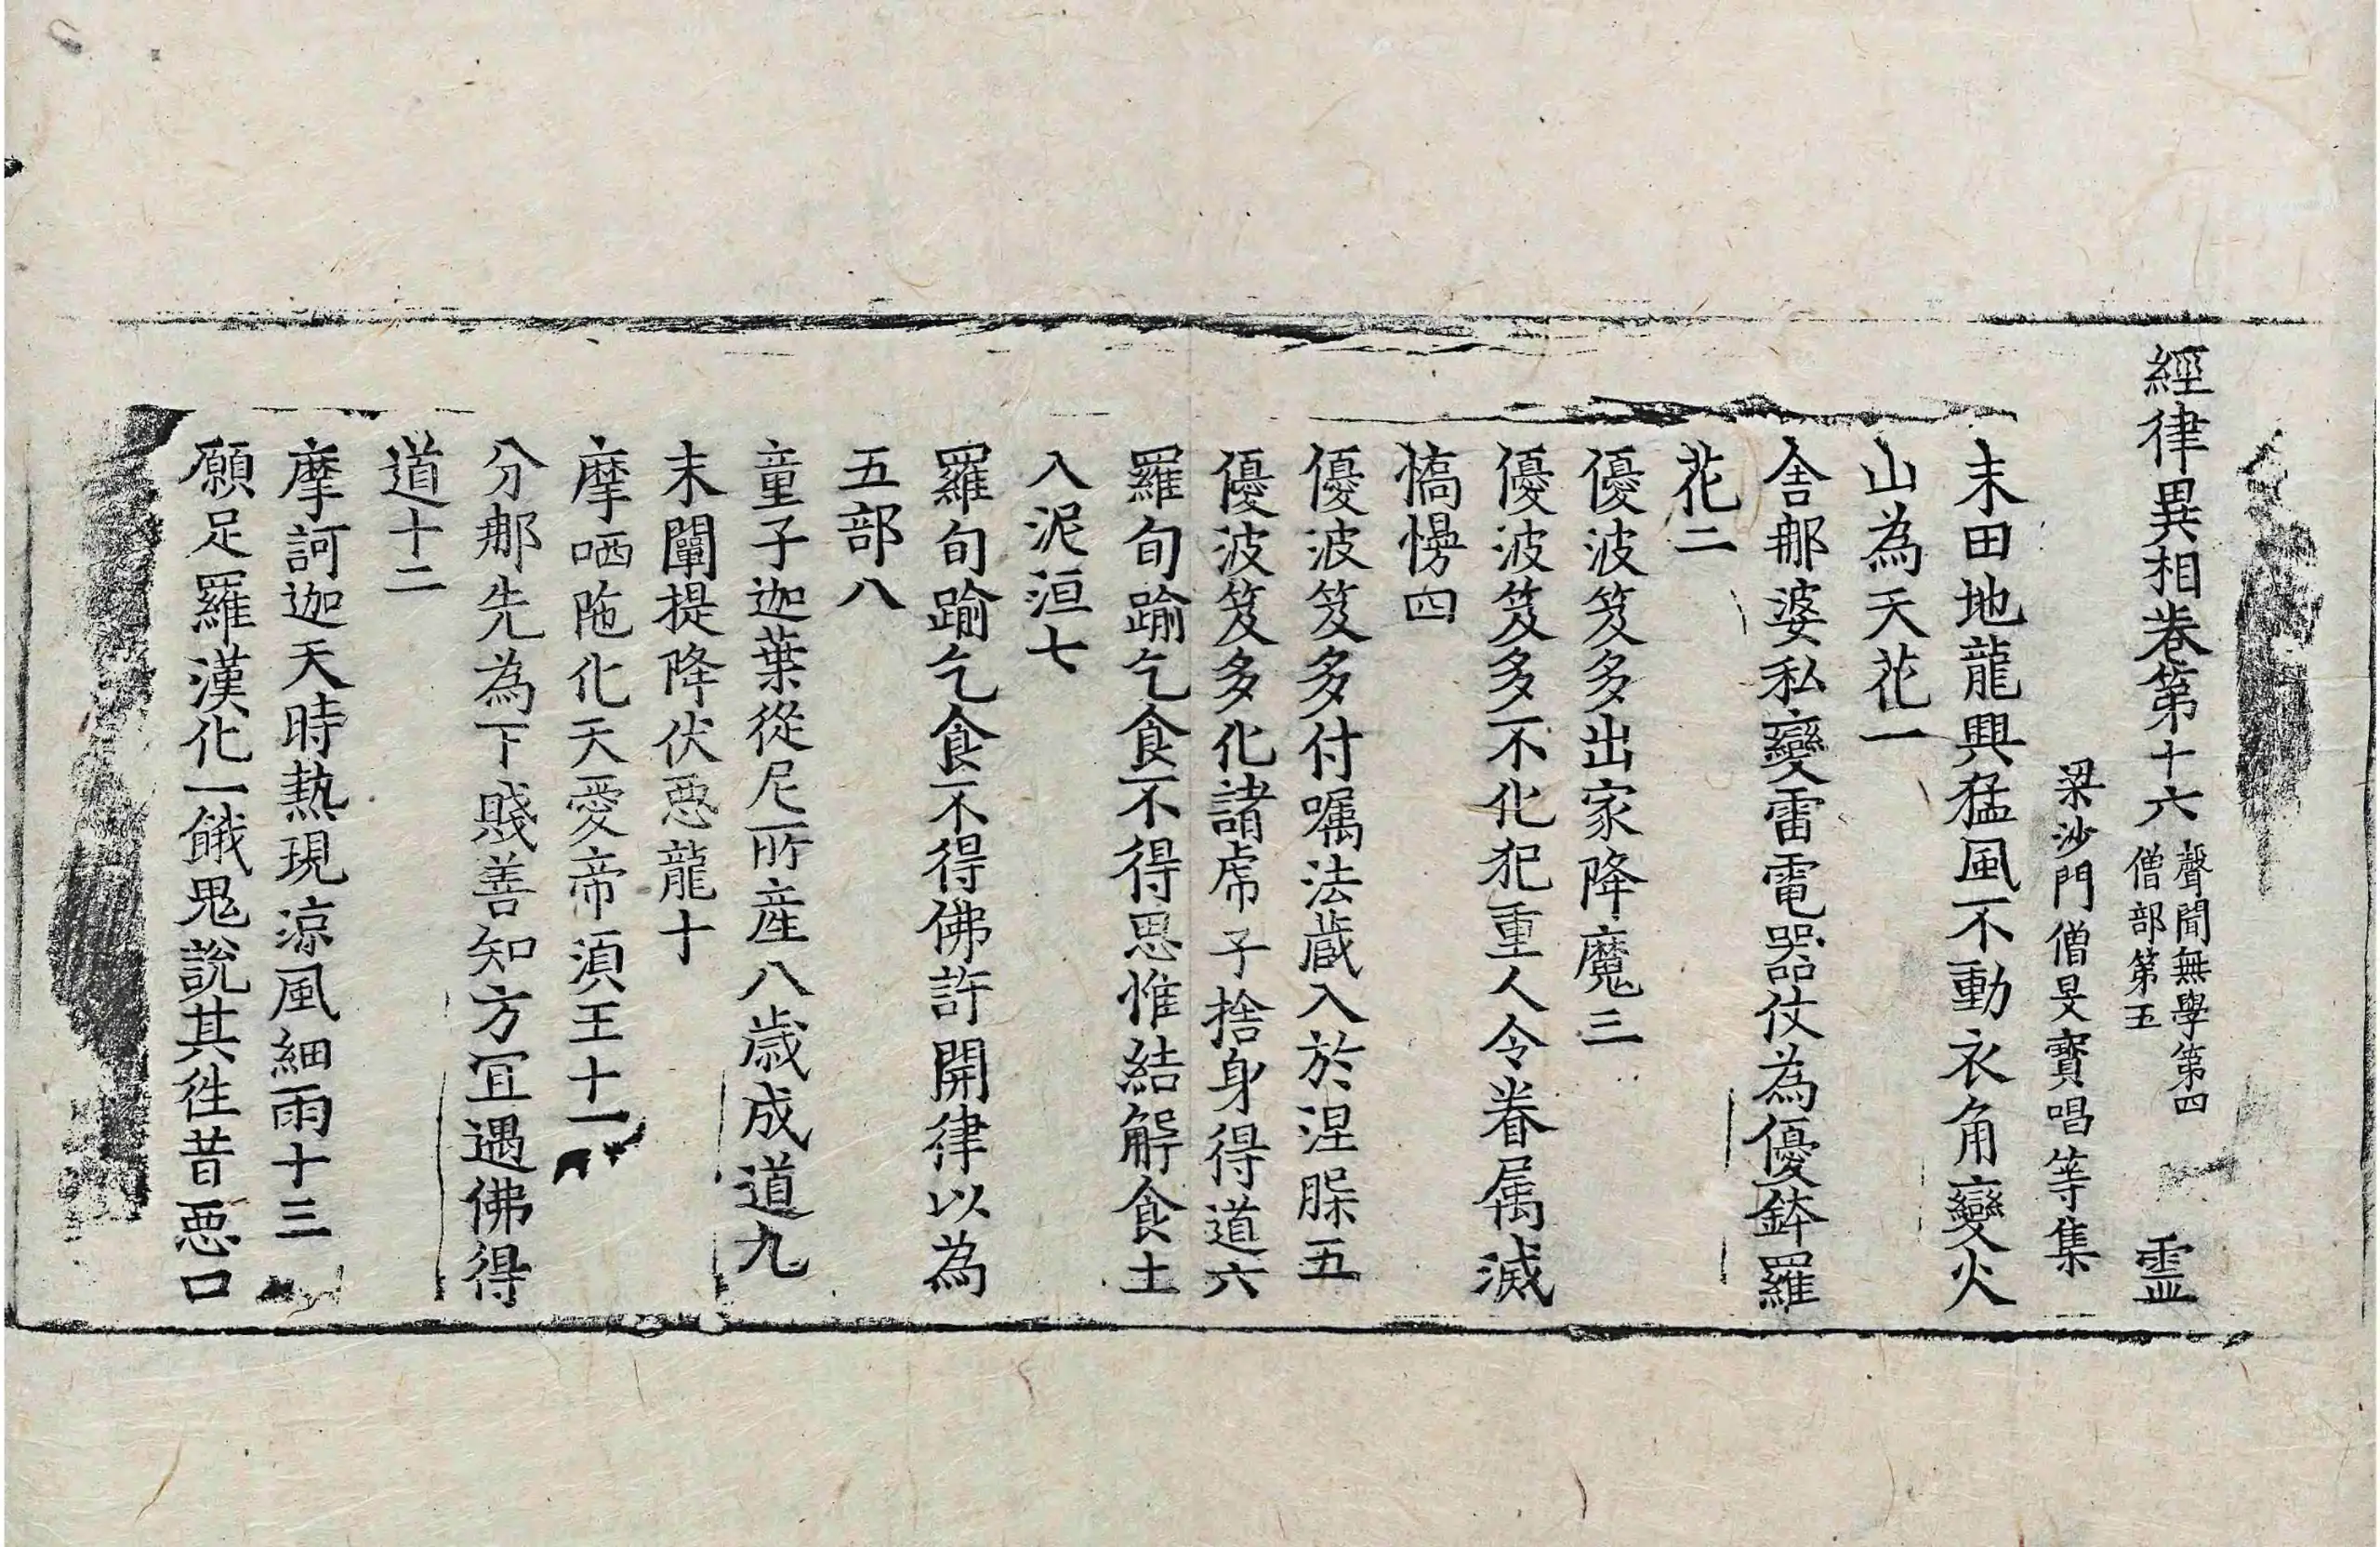 經律異相卷第十六 聲聞無學第四 僧部第五 霊
梁沙門僧旻寶唱等集
末田地龍興猛風不動衣角變火
山為天花一
舎那婆私變雷電器仗為優鉢羅
花二
優波笈多出家降魔三
優波笈多不化犯重人令眷属滅
憍慢四
優波笈多付嘱法蔵入於涅槃五
優波笈多化諸虎子捨身得道六
羅旬踰乞食不得思惟結解食土
入泥洹七
羅旬踰乞食不得佛許開律以為
五部八
童子迦葉從尼所産八歳成道九
末闡提降伏惡龍十
摩哂陁化天愛帝湏王十一
分那先為下賤善知方冝遇佛得
道十二
摩訶迦天時熱現涼風細雨十三
願足羅漢化一餓鬼說其徃昔惡口